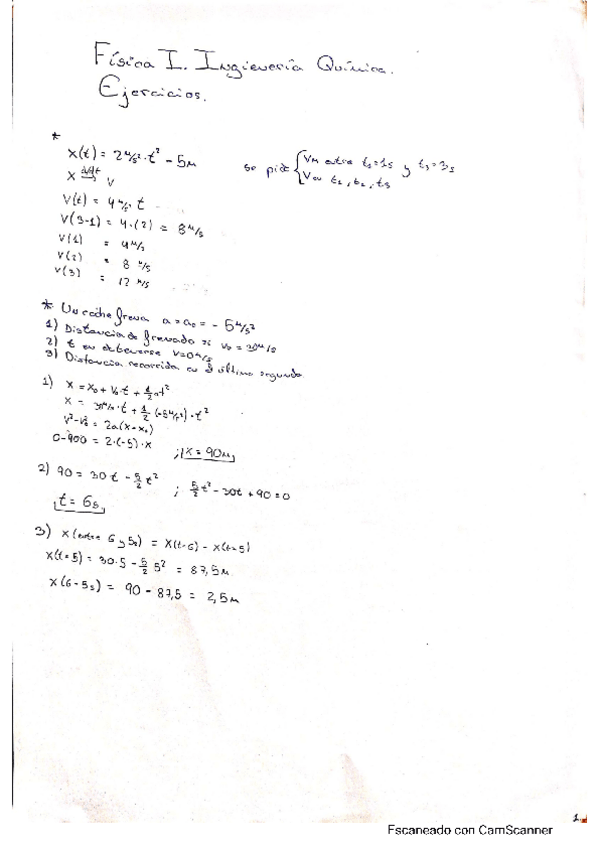 Física I. Ingieneria Química.
Ejercicios.
*
x(t) = 2 m/s² · t² - 5m
se pide { Vm entre t₁=1s y t₃=3s
Ven t₁, t₂, t₃
x → v
V(t) = 4 m/s² · t
V(3-1) = 4·(2) = 8 m/s
V(1) = 4 m/s
V(2) = 8 m/s
V(3) = 12 m/s
* Un coche frena a = a₀ = - 5 m/s²
1) Distancia de frenado si v₀ = 30 m/s
2) t en detenerse V=0 m/s
3) Distancia recorrida en el último segundo.
1) x = x₀ + V₀·t + 1/2 at²
x = 30 m/s · t + 1/2 (-5 m/s²) · t²
V²-V₀² = 2a(x-x₀)
0-900 = 2·(-5)·x ; x = 90m
2) 90 = 30t - 5/2 t² ; 5/2 t² - 30t + 90 = 0
t = 6s
3) x(entre 6 y 5s) = x(t=6) - x(t=5)
x(t=5) = 30·5 - 5/2 5² = 87,5m
x(6-5s) = 90 - 87,5 = 2,5m
1.
Escaneado con CamScanner